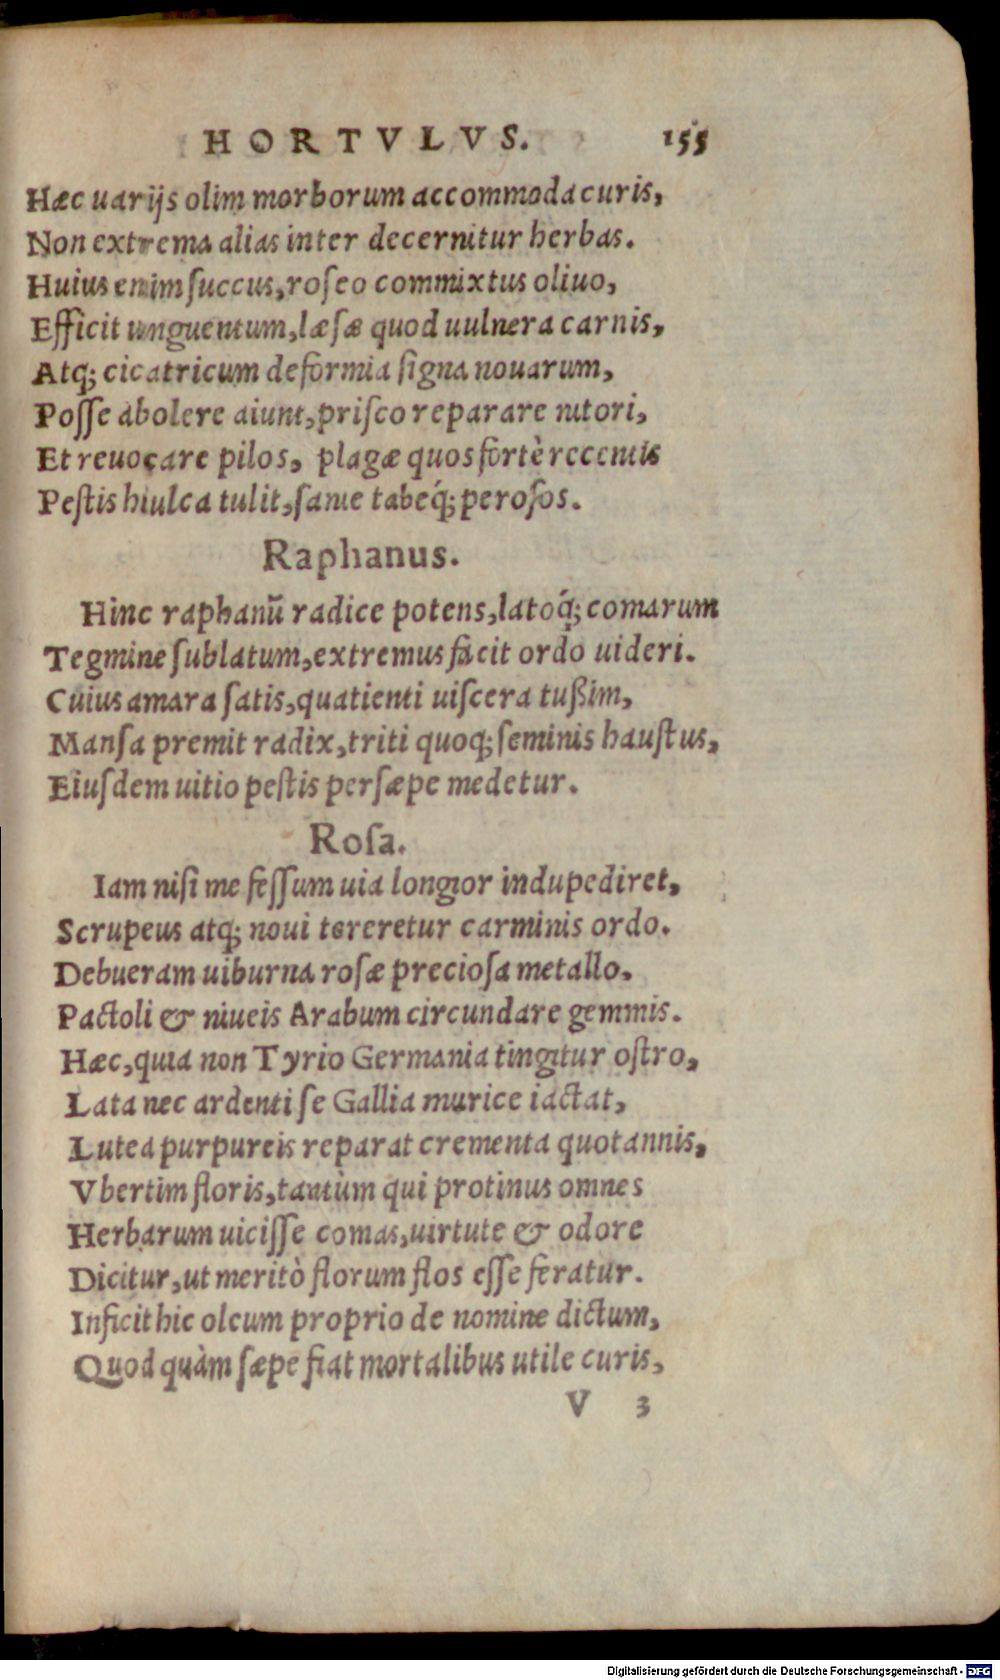 HORTVLVS. 155
Hæc uarijs olim morborum accommoda curis,
Non extrema alias inter decernitur herbas.
Huius enim ſuccus, roſeo commixtus oliuo,
Efficit unguentum, læſæ quod uulnera carnis,
Atq; cicatricum deformia ſigna nouarum,
Poſſe abolere aiunt, priſco reparare nitori,
Et reuocare pilos, plagæ quos fortè recentis
Peſtis hiulca tulit, ſanie tabeq́; peroſos.
Raphanus.
Hinc raphanū radice potens, latoq́; comarum
Tegmine ſublatum, extremus facit ordo uideri.
Cuius amara ſatis, quatienti uiſcera tußim,
Manſa premit radix, triti quoq; ſeminis hauſtus,
Eiuſdem uitio peſtis perſæpe medetur.
Roſa.
Iam niſi me feſſum uia longior indupediret,
Scrupeus atq; noui tereretur carminis ordo.
Debueram uiburna roſæ precioſa metallo.
Pactoli & niueis Arabum circundare gemmis.
Hæc, quia non Tyrio Germania tingitur oſtro,
Lata nec ardenti ſe Gallia murice iactat,
Lutea purpureis reparat crementa quotannis,
Vbertim floris, tantùm qui protinus omnes
Herbarum uiciſſe comas, uirtute & odore
Dicitur, ut meritò florum flos eſſe feratur.
Inficit hic oleum proprio de nomine dictum,
Quod quàm ſæpe fiat mortalibus utile curis,
V 3
Digitalisierung gefördert durch die Deutsche Forschungsgemeinschaft - DFG